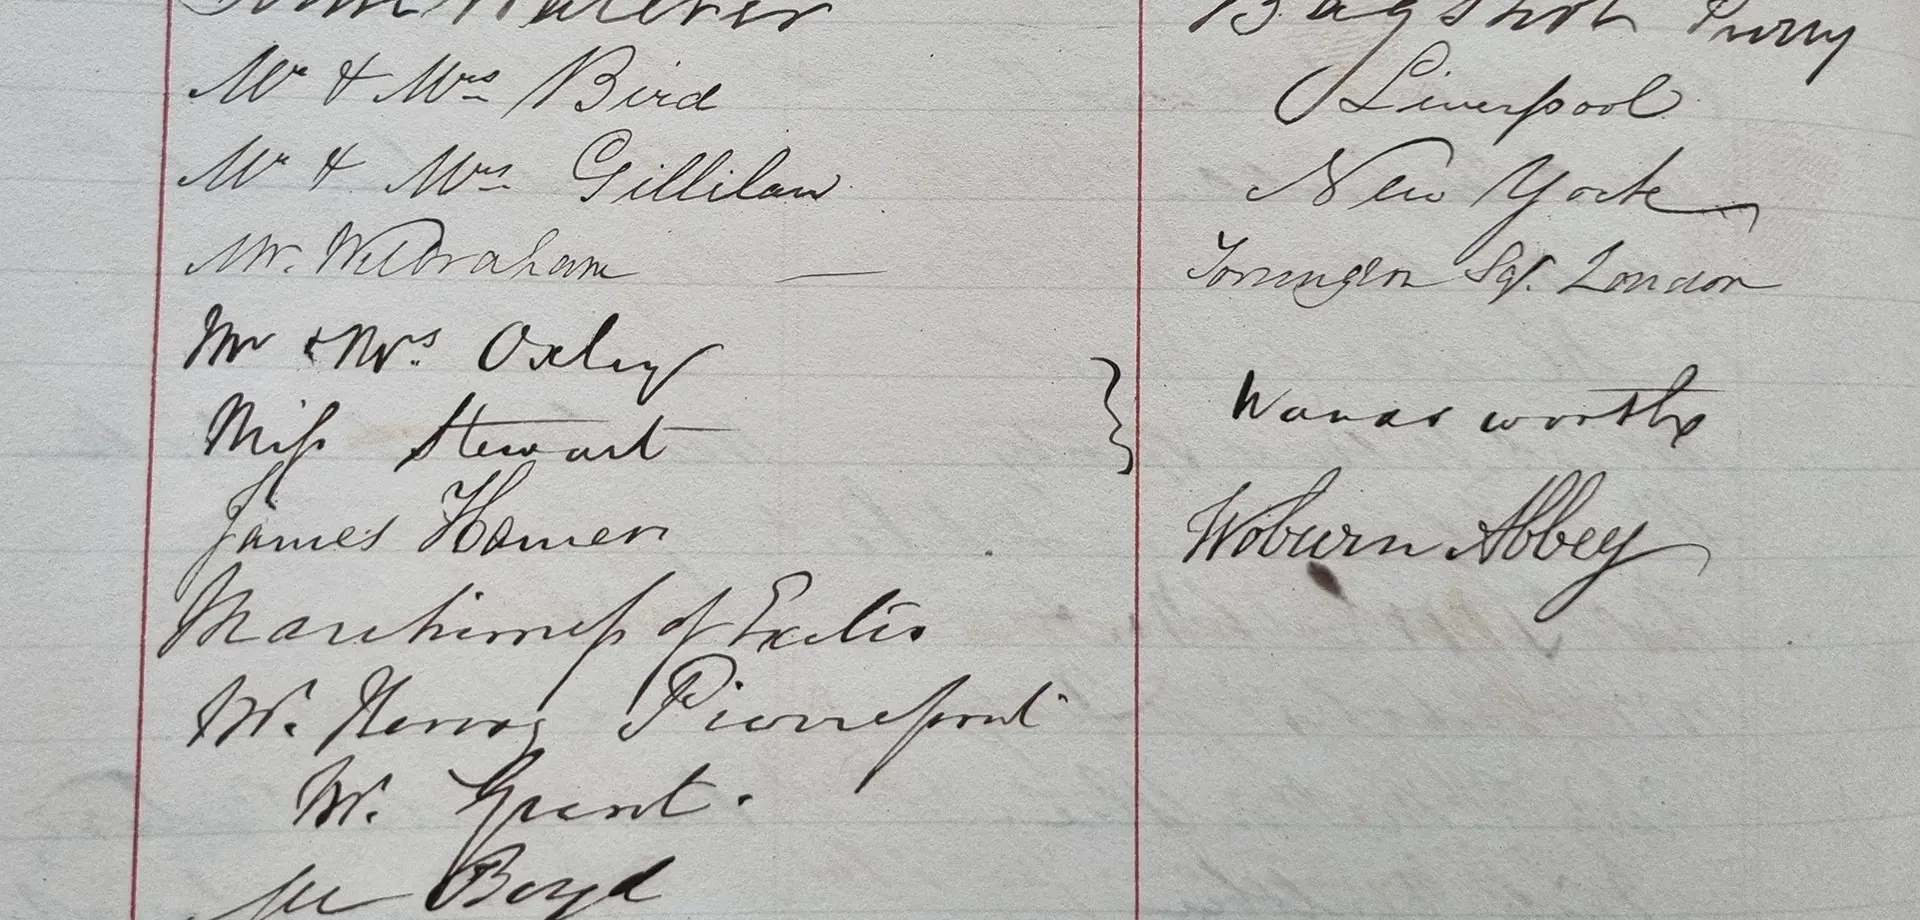 John Waterer Bagshot Surry
Mr & Mrs Bird Liverpool
Mr & Mrs Gillilan New York
Mr. Wilbraham — Torrington Sq. London
Mr & Mrs. Oxley
Miss Stewart } Wandsworth
James Hamer Woburn Abbey
Marchioness of Exeter
Mr. Hervey Pierrepont
Mr. Grant.
Mr Boyd